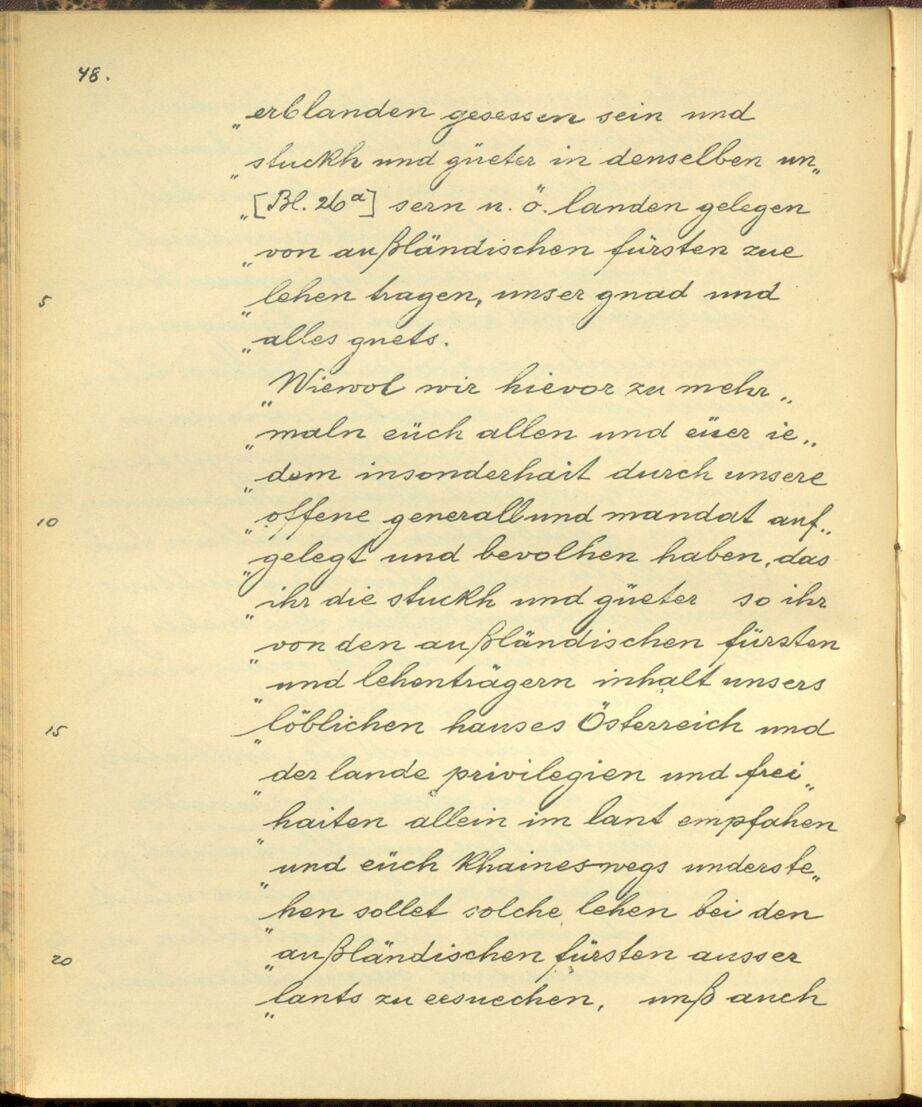 48.
„erblanden gesessen sein und
„stuckh und güeter in denselben un„
„[Bl. 26a] sern n. ö. landen gelegen
„von außländischen fürsten zue
5 „lehen tragen, unser gnad und
„alles guets.
„Wiewol wir hievor zu mehr„
„maln eüch allen und eüer ie„
„dem insonderhait durch unsere
10 „offene generall und mandat auf„
„gelegt und bevolhen haben, das
„ihr die stuckh und güeter so ihr
„von den außländischen fürsten
„und lehenträgern inhalt unsers
15 „löblichen hauses Österreich und
„der lande privilegien und frei„
„haiten allein im lant empfahen
„und eüch khaineswegs underste„
„hen sollet solche lehen bei den
20 „außländischen fürsten ausser
„lants zu ersuechen, unß auch